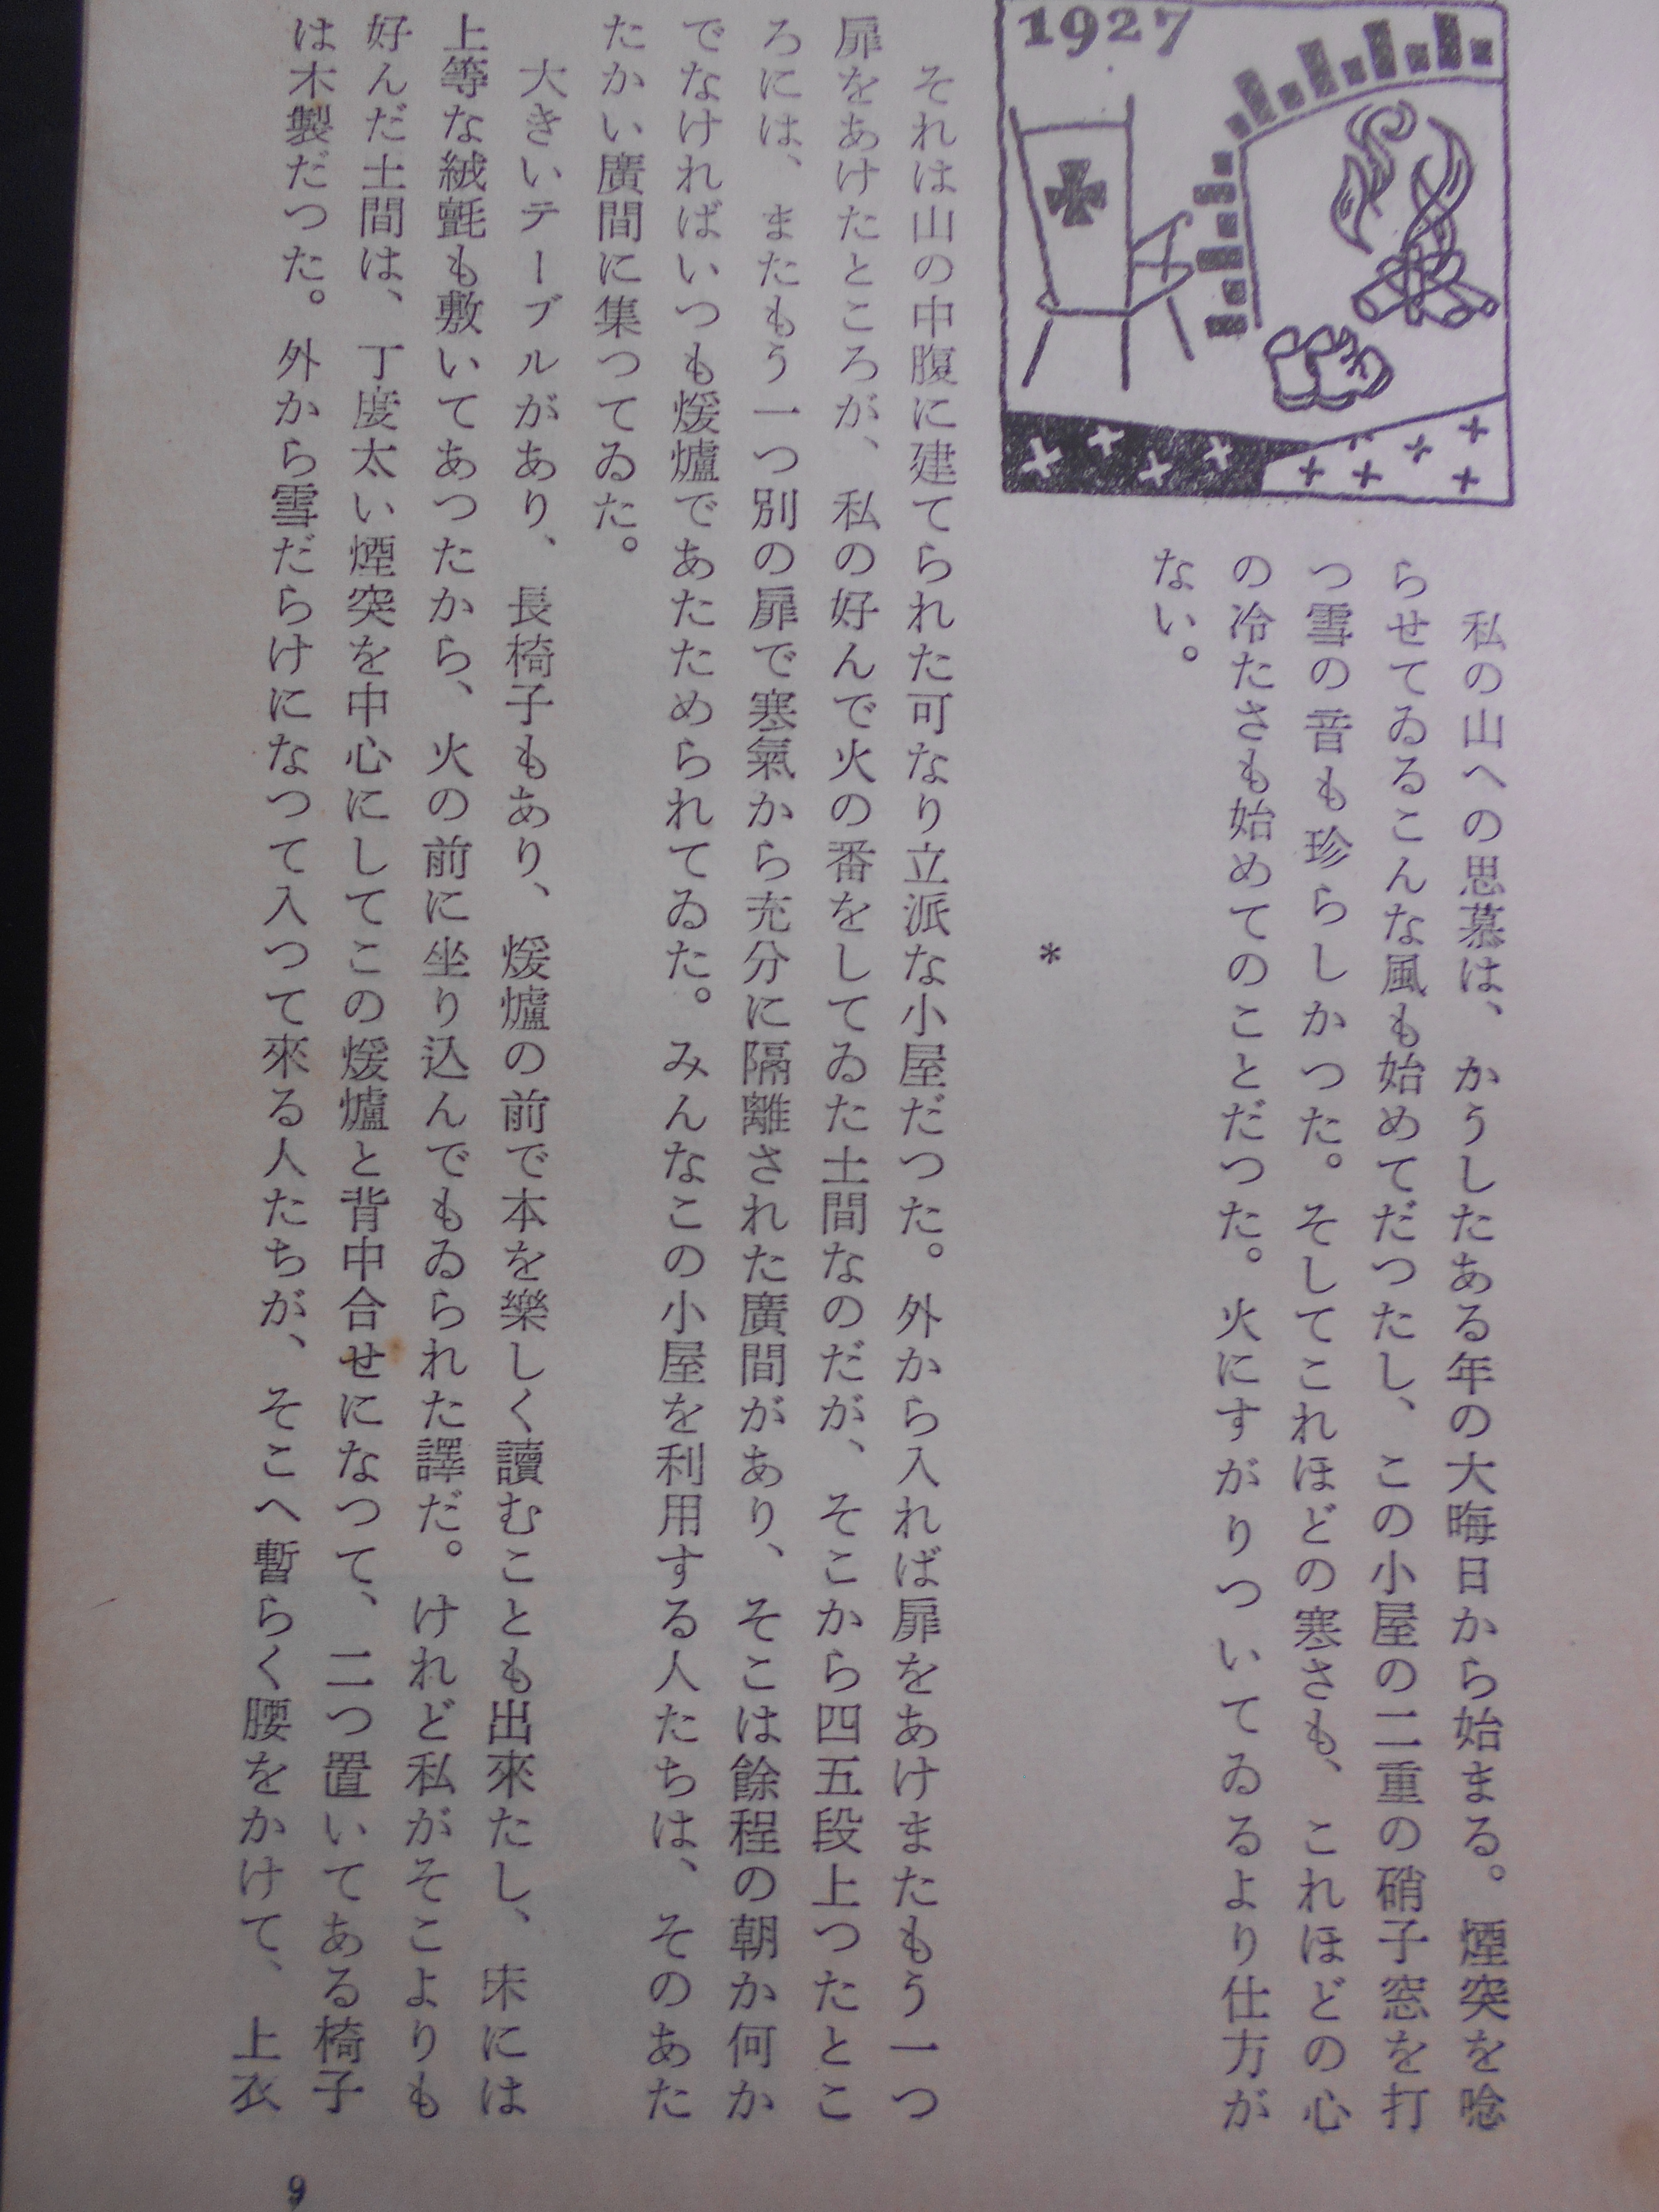 1927
私の山への思慕は、かうしたある年の大晦日から始まる。煙突を唸
らせてゐるこんな風も始めてだつたし、この小屋の二重の硝子窓を打
つ雪の音も珍らしかつた。そしてこれほどの寒さも、これほどの心
の冷たさも始めてのことだつた。火にすがりついてゐるより仕方が
ない。
*
それは山の中腹に建てられた可なり立派な小屋だつた。外から入れば扉をあけまたもう一つ
扉をあけたところが、私の好んで火の番をしてゐた土間なのだが、そこから四五段上つたとこ
ろには、またもう一つ別の扉で寒氣から充分に隔離された廣間があり、そこは餘程の朝か何か
でなければいつも煖爐であたためられてゐた。みんなこの小屋を利用する人たちは、そのあた
たかい廣間に集つてゐた。
大きいテーブルがあり、長椅子もあり、煖爐の前で本を樂しく讀むことも出來たし、床には
上等な絨氈も敷いてあつたから、火の前に坐り込んでもゐられた譯だ。けれど私がそこよりも
好んだ土間は、丁度太い煙突を中心にしてこの煖爐と背中合せになつて、二つ置いてある椅子
は木製だつた。外から雪だらけになつて入つて來る人たちが、そこへ暫らく腰をかけて、上衣
9